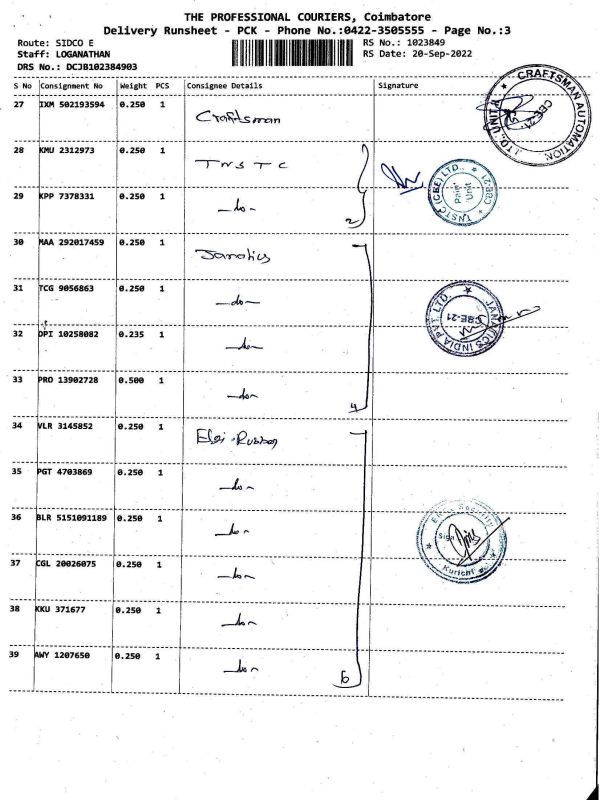 THE PROFESSIONAL COURIERS, Coimbatore
Delivery Runsheet - PCK - Phone No.:0422-3505555 - Page No.:3
Route: SIDCO E
Staff: LOGANATHAN
DRS No.: DCJB102384903
RS No.: 1023849
RS Date: 20-Sep-2022
S No Consignment No Weight PCS Consignee Details Signature
27 IXM 502193594 0.250 1 Craftsman
CRAFTSMAN AUTOMATION LTD., UNIT CBE-21
28 KMU 2312973 0.250 1 TNSTC
29 KPP 7378331 0.250 1 -do-
2
TNSTC (CBE) LTD., CBE-21 Paint Unit
30 MAA 292017459 0.250 1 Janatics
31 TCG 9056863 0.250 1 -do-
32 DPI 10258082 0.235 1 -do-
JANATICS INDIA PVT. LTD. CBE-21
33 PRO 13902728 0.500 1 -do-
4
34 VLR 3145852 0.250 1 Elgi Rubber
35 PGT 4703869 0.250 1 -do-
36 BLR 5151091189 0.250 1 -do-
Sign
Kurichi
37 CGL 20026075 0.250 1 -do-
38 KKU 371677 0.250 1 -do-
39 AWY 1207650 0.250 1 -do-
6